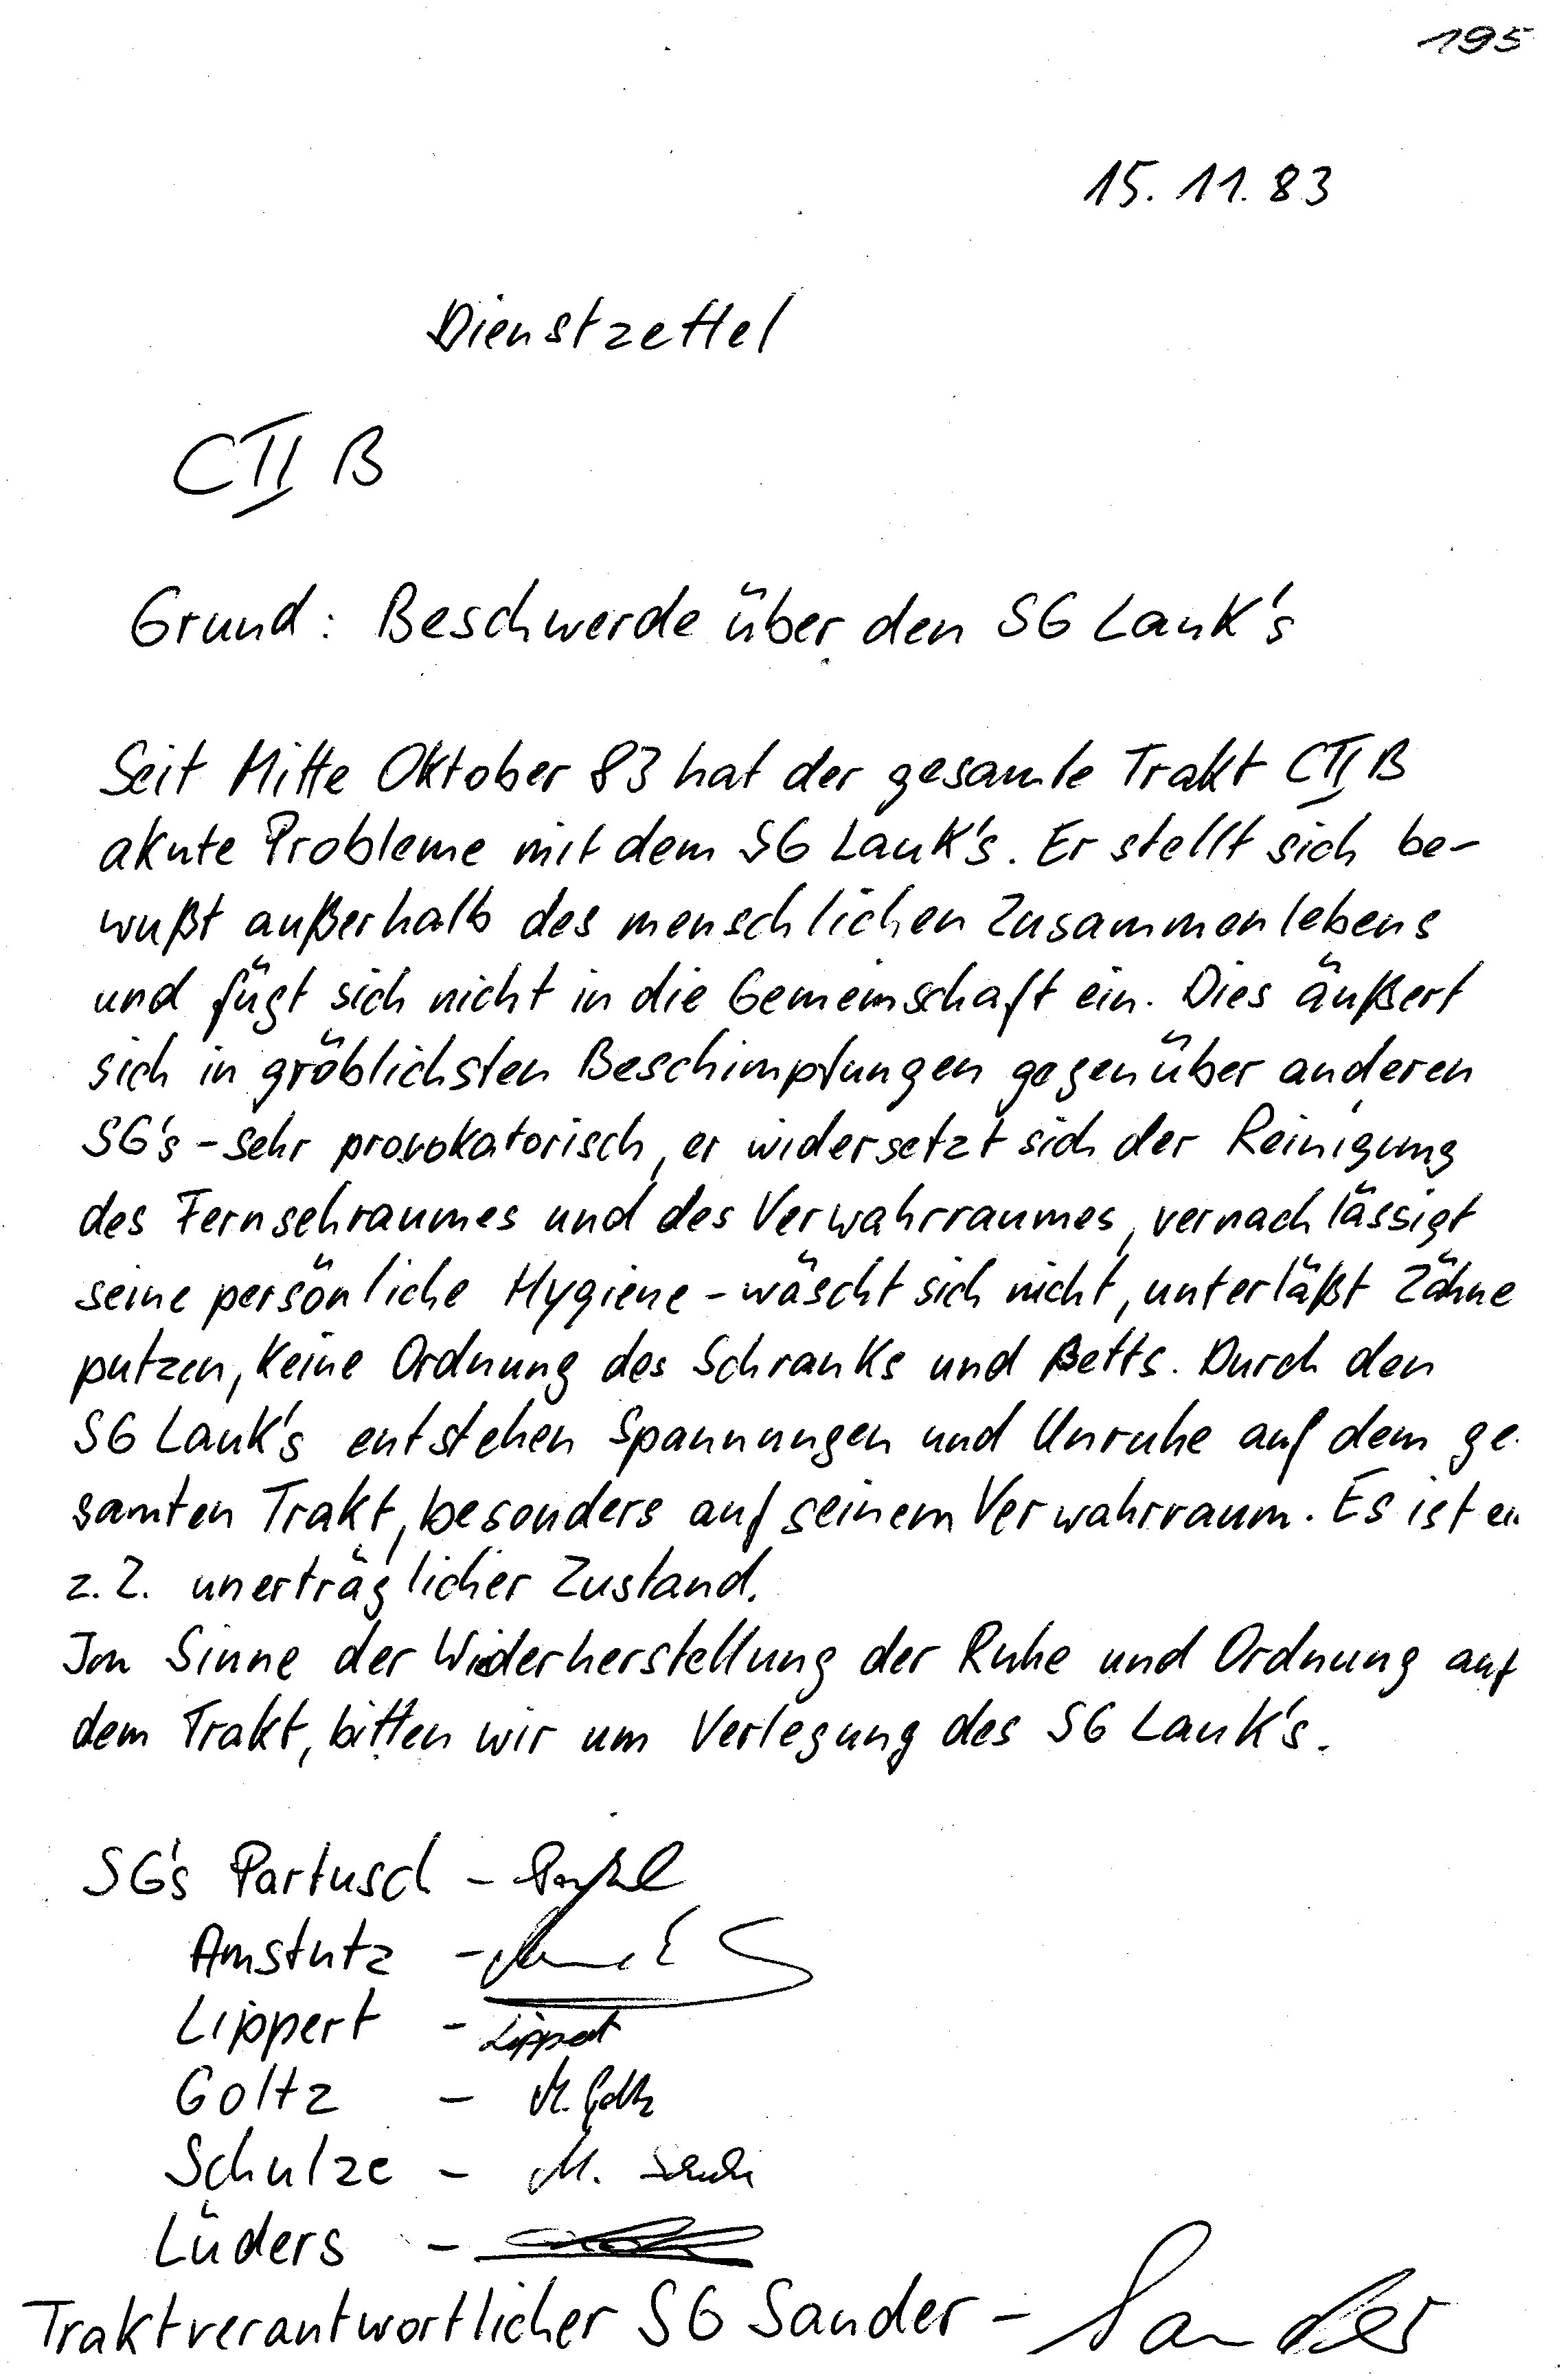 195
15. 11. 83
Dienstzettel
CII B
Grund: Beschwerde über den SG Lauk's
Seit Mitte Oktober 83 hat der gesamte Trakt CII B
akute Probleme mit dem SG Lauk's. Er stellt sich be-
wußt außerhalb des menschlichen Zusammenlebens
und fügt sich nicht in die Gemeinschaft ein. Dies äußert
sich in gröblichsten Beschimpfungen gegenüber anderen
SG's - sehr provokatorisch, er widersetzt sich der Reinigung
des Fernsehraumes und des Verwahrraumes, vernachlässigt
seine persönliche Hygiene - wäscht sich nicht, unterläßt Zähne
putzen, keine Ordnung des Schranks und Betts. Durch den
SG Lauk's entstehen Spannungen und Unruhe auf dem ge-
samten Trakt, besonders auf seinem Verwahrraum. Es ist
z. Z. unerträglicher Zustand.
Im Sinne der Widerherstellung der Ruhe und Ordnung auf
dem Trakt, bitten wir um Verlegung des SG Lauk's.
SG's Partusch -
Amstutz -
Lippert - Lippert
Goltz - M. Goltz
Schulze - M. Schulze
Lüders -
Traktverantwortlicher SG Sander - Sander